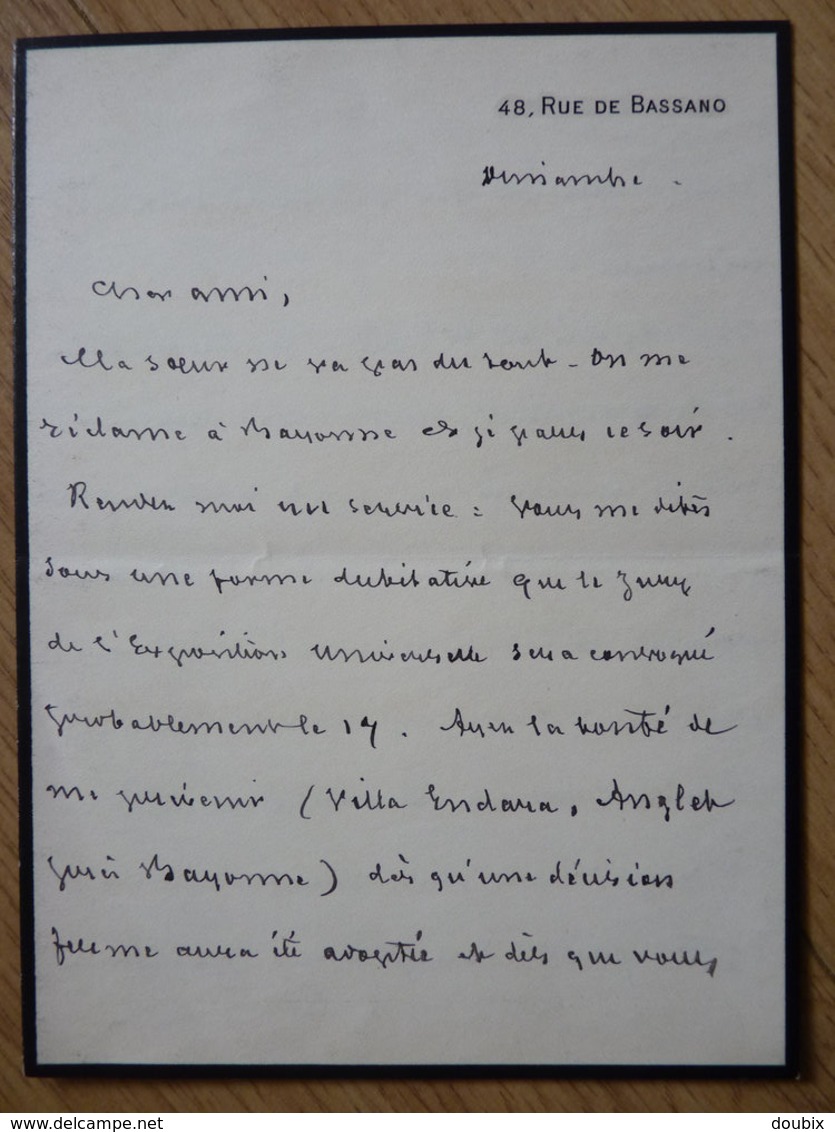 48, RUE DE BASSANO
Cher ami,
Ma soeur ne va pas du tout - On me
réclame à Bayonne et je pars ce soir.
Rendez moi un service : Vous me dites
sous une forme dubitative que le Jury
de l'Exposition universelle sera convoqué
probablement le 17. Ayez la bonté de
me prévenir (Villa Endara, Anglet
près Bayonne) dès qu'une décision
ferme aura été adoptée et dès que vous
delcampe.net
doubix